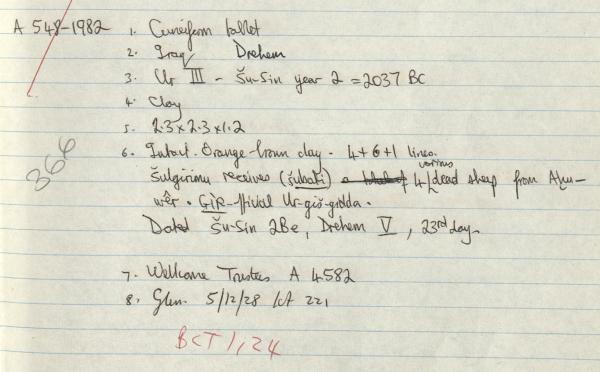 A 548-1982 1. Cuneiform tablet
2. Iraq Drehem
3. Ur III - Šu-Sin year 2 = 2037 BC
4. Clay
5. 2.3 x 2.3 x 1.2
6. Intact. Orange-brown clay. 4+6+1 lines.
Šulgirimu receives (šubati) 4 various dead sheep from Ahu-
wêr. GÌR-official Ur-giš-gidda.
Dated Šu-Sin 2Be, Drehem V, 23rd day.
366
7. Wellcome Trustees A 4582
8. Glen. 5/12/28 lot 221
BCT 1, 24